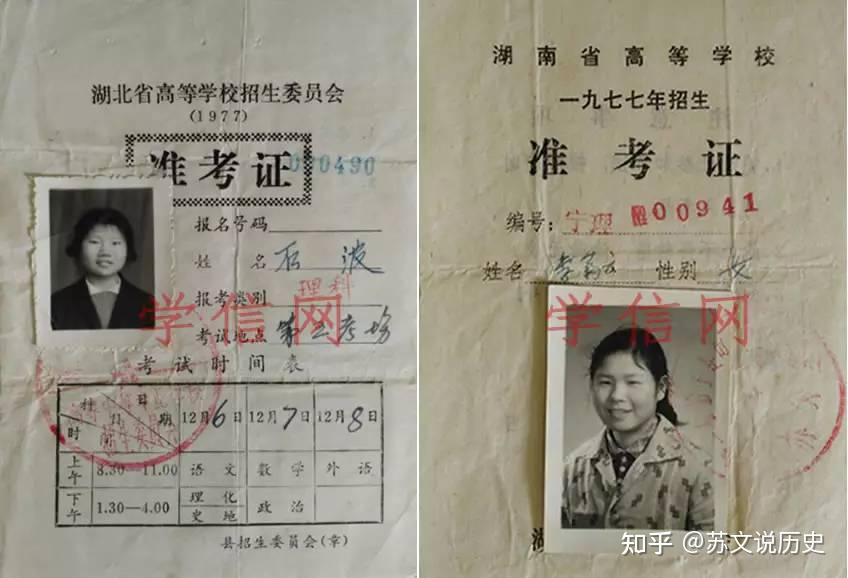 湖北省高等学校招生委员会
(1977)
准考证
000490
报名号码
姓名 石波
报考类别 理科
考试地点 第三考场
考试时间表
科目 日期 时间 12月6日 12月7日 12月8日
上午 8.30—11.00 语文 数学 外语
下午 1.30—4.00 理化 史地 政治
县招生委员会(章)
湖南省高等学校
一九七七年招生
准考证
编号: 宁理 00941
姓名 性别 女
湖
学信网
学信网
知乎 @苏文说历史